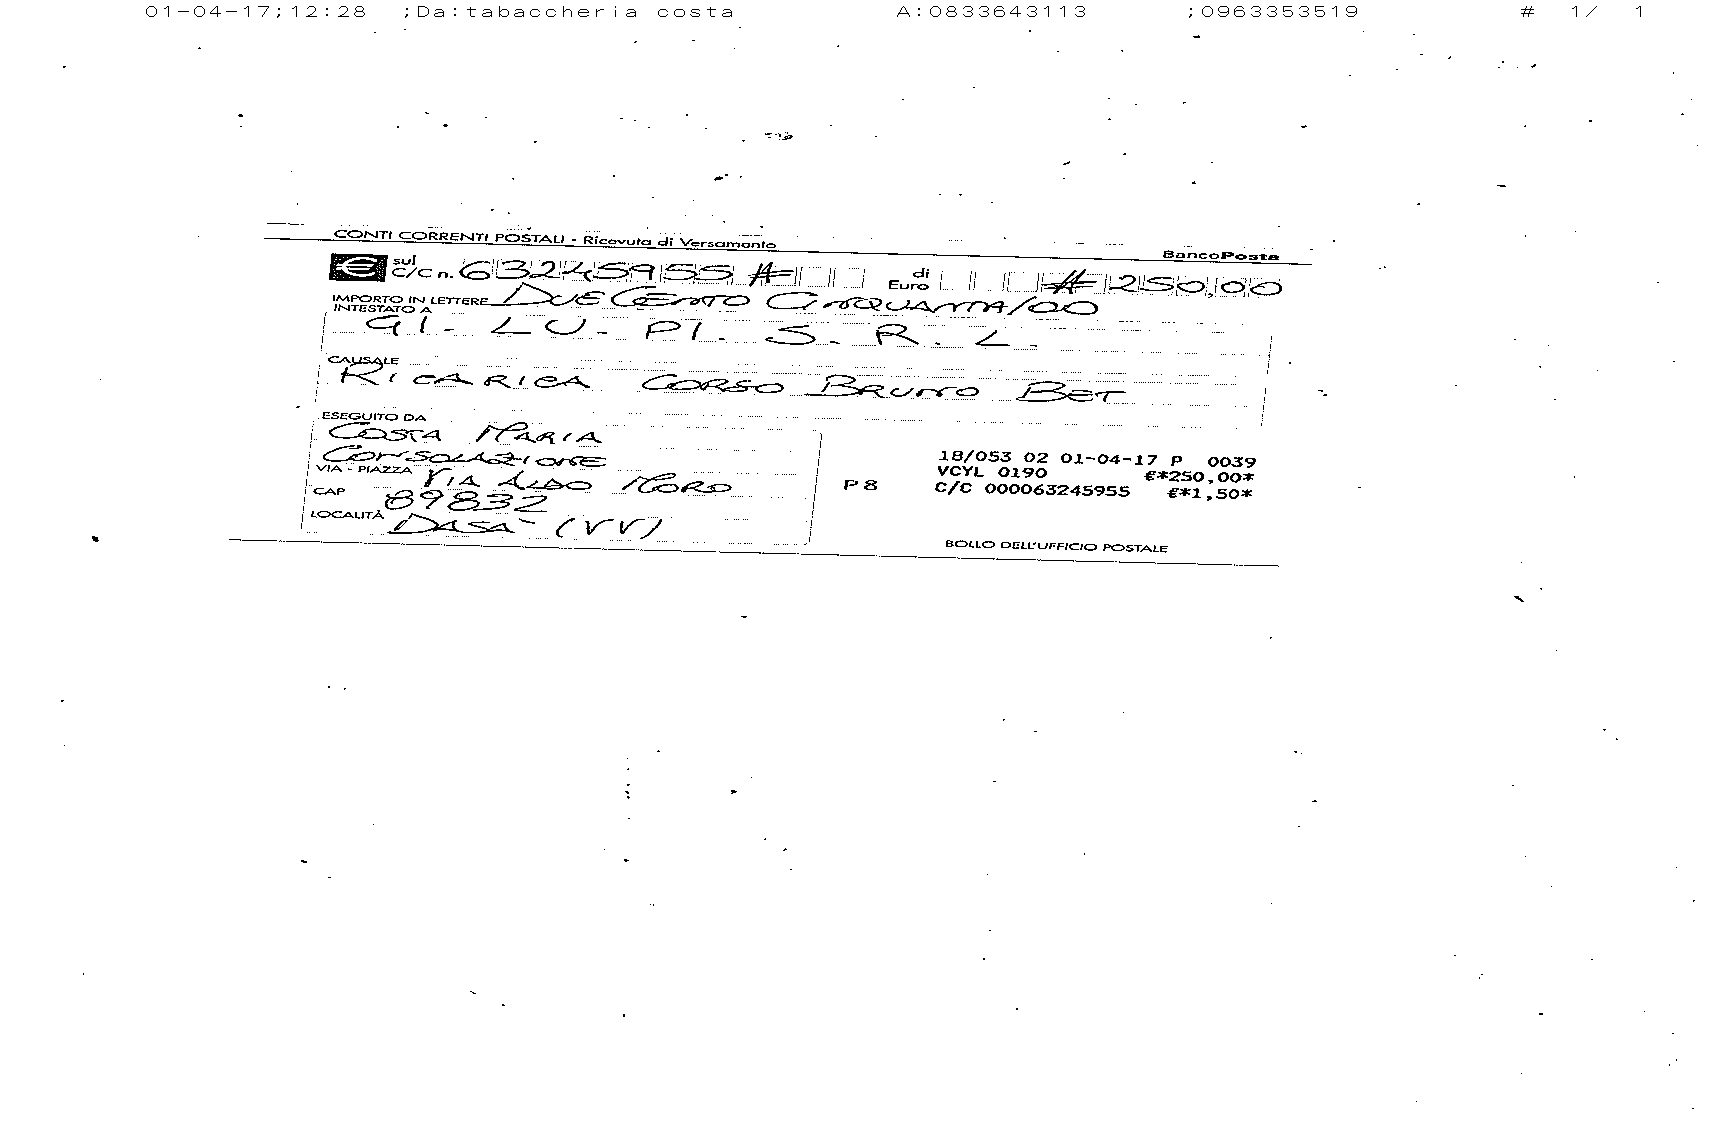 01-04-17;12:28 ;Da:tabaccheria costa A:0833643113 ;0963353519 # 1/ 1
CONTI CORRENTI POSTALI - Ricevuta di Versamento BancoPosta
€ sul C/C n. 63245955 # di Euro # 250,00
IMPORTO IN LETTERE DUECENTO CINQUANTA/00
INTESTATO A
GI. LU. PI. S. R. L.
CAUSALE
RICARICA CORSO BRUNO BET
ESEGUITO DA
COSTA MARIA
CONSOLAZIONE
VIA - PIAZZA VIA ALDO MORO
CAP 89832
LOCALITÀ DASA' (VV)
18/053 02 01-04-17 P 0039
VCYL 0190 €*250,00*
P 8 C/C 000063245955 €*1,50*
BOLLO DELL'UFFICIO POSTALE